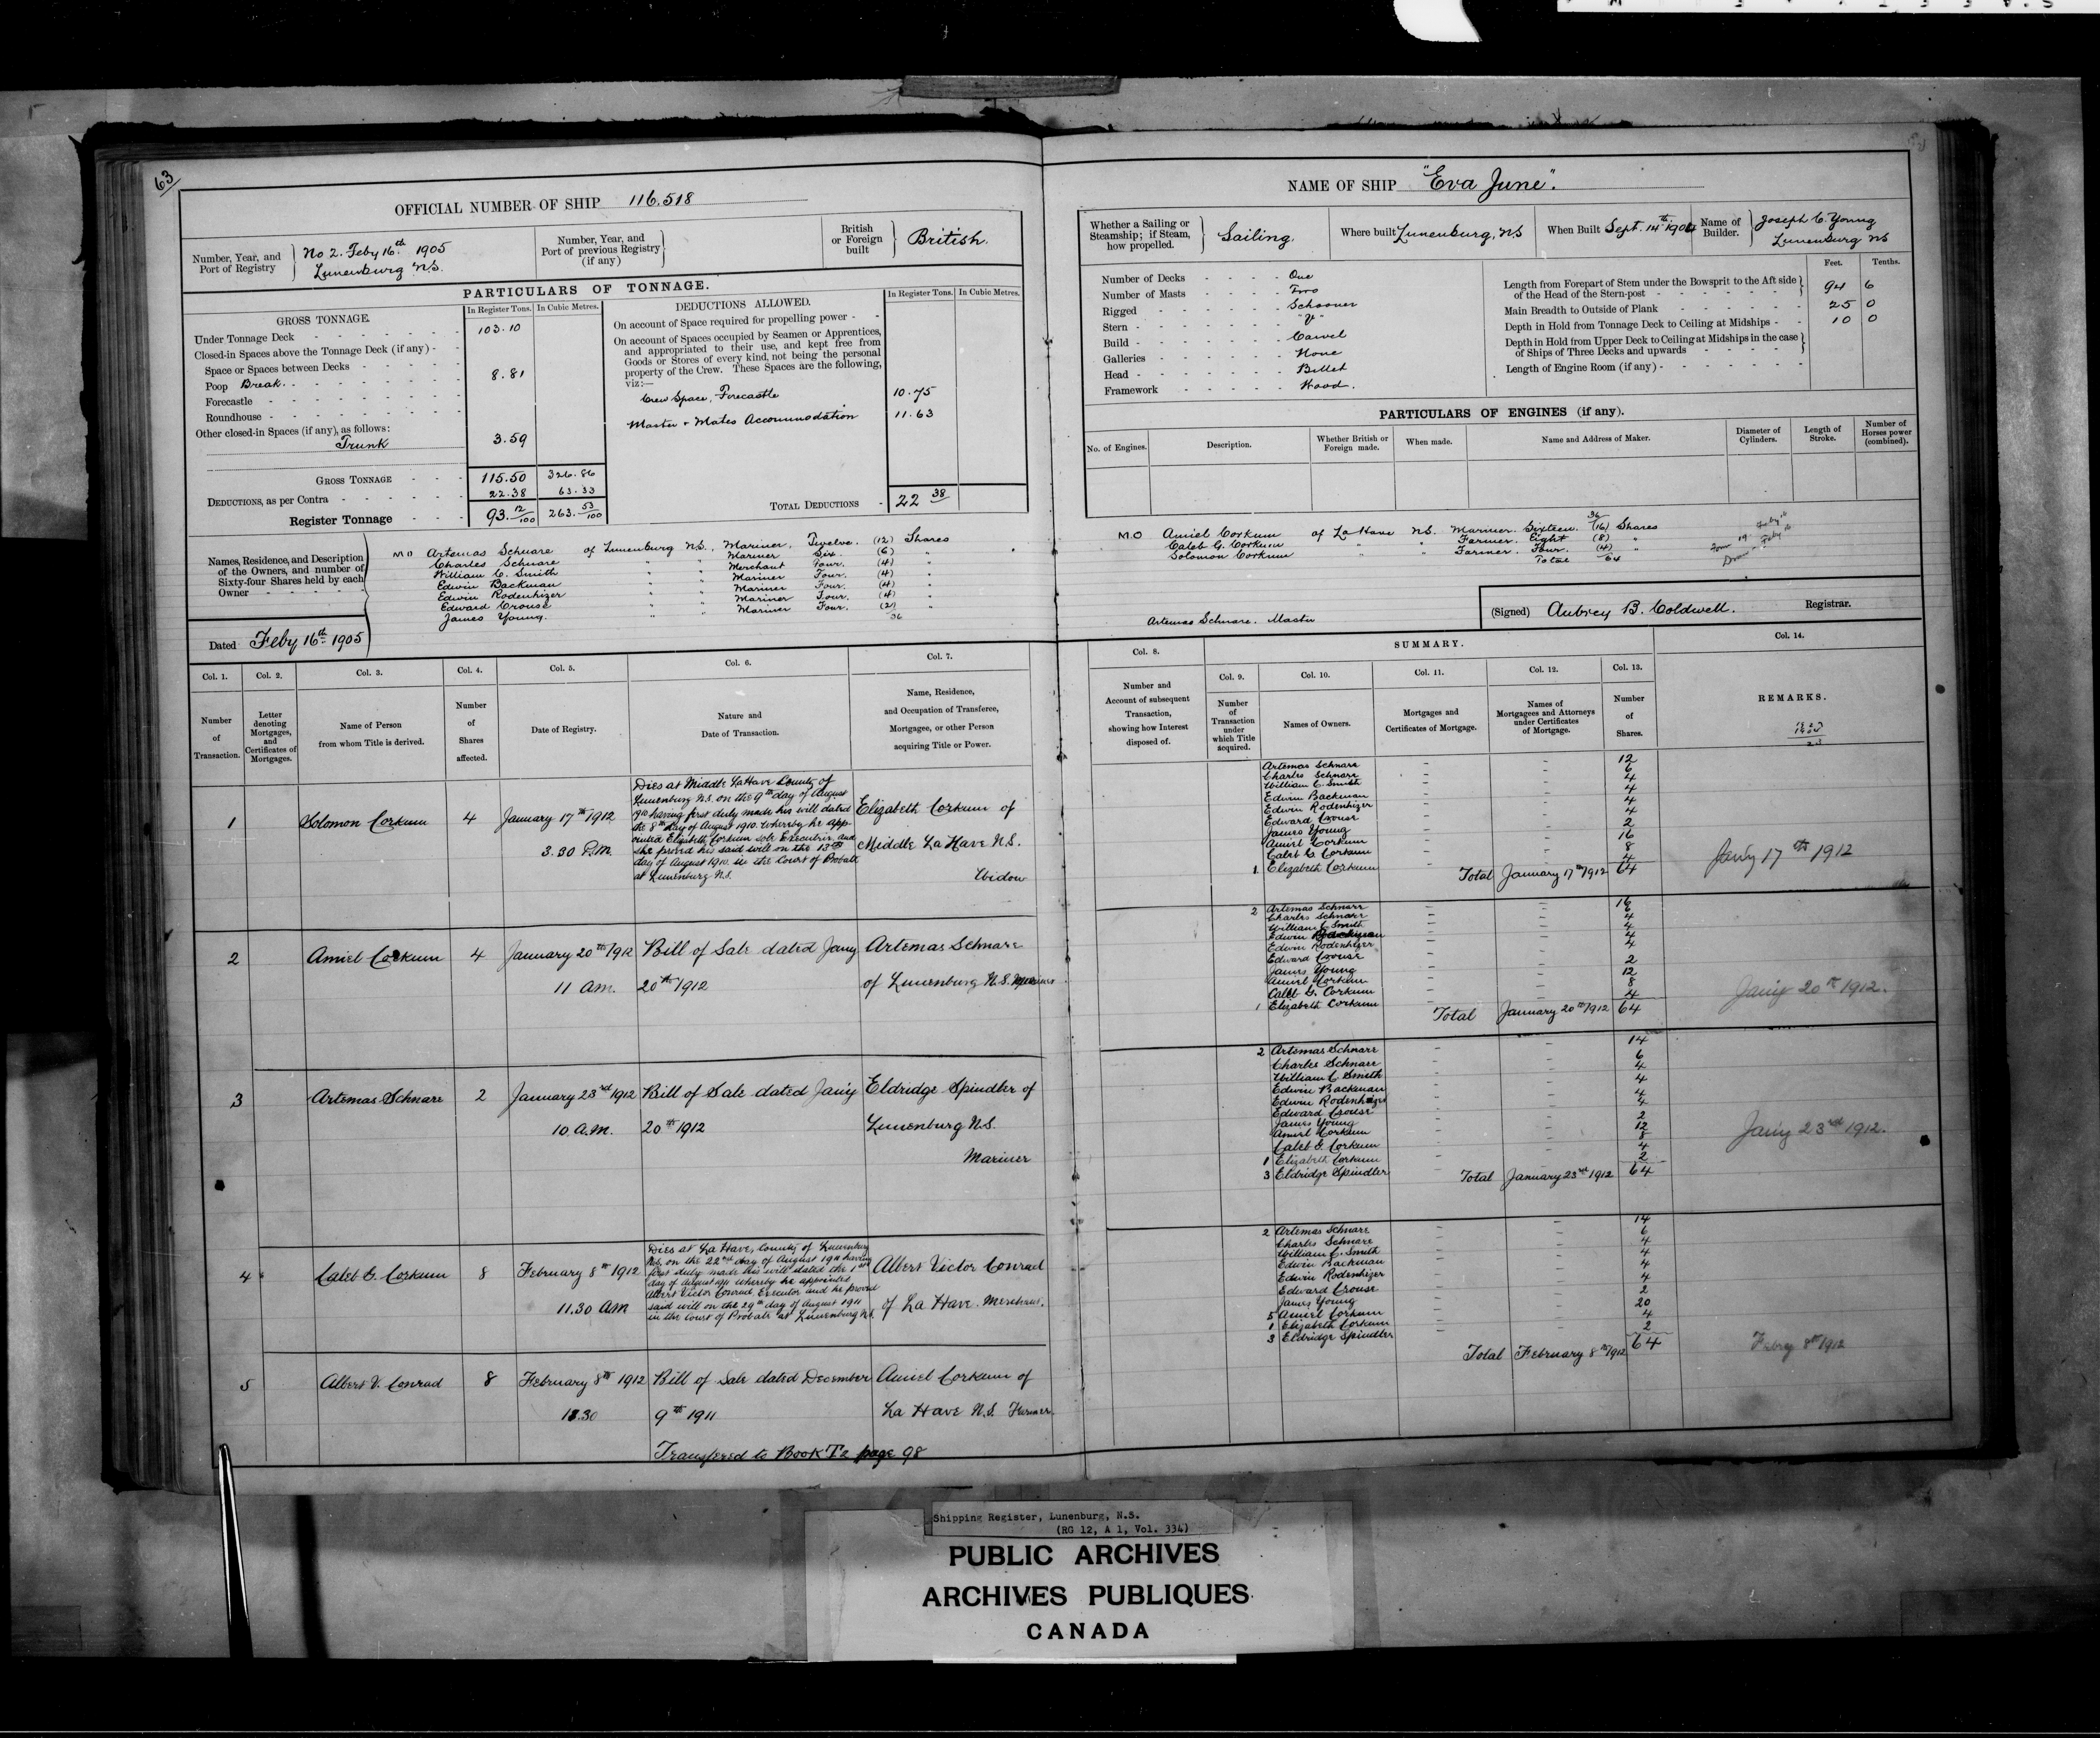 63
OFFICIAL NUMBER OF SHIP 116.518
Number, Year, and Port of Registry } No 2. Feby 16th 1905
Lunenburg N.S.
Number, Year, and Port of previous Registry (if any) }
British or Foreign built } British.
PARTICULARS OF TONNAGE.
GROSS TONNAGE. In Register Tons. In Cubic Metres.
Under Tonnage Deck - - - 103.10
Closed-in Spaces above the Tonnage Deck (if any) - -
Space or Spaces between Decks - - - -
Poop Break. - - - 8.81
Forecastle - - - -
Roundhouse - - - -
Other closed-in Spaces (if any), as follows:
Trunk 3.59
GROSS TONNAGE - - - 115.50 326.86
DEDUCTIONS, as per Contra - - - 22.38 63.33
Register Tonnage - - - 93.12/100 263.53/100
DEDUCTIONS ALLOWED. In Register Tons. In Cubic Metres.
On account of Space required for propelling power - -
On account of Spaces occupied by Seamen or Apprentices,
and appropriated to their use, and kept free from
Goods or Stores of every kind, not being the personal
property of the Crew. These Spaces are the following,
viz:—
Crew Space, Forecastle 10.75
Master + Mates Accommodation 11.63
TOTAL DEDUCTIONS - 22 38
Names, Residence, and Description
of the Owners, and number of
Sixty-four Shares held by each
Owner - - - - -
MO Artemas Schnare of Lunenburg N.S., Mariner, Twelve. (12) Shares
Charles Schnare " " Mariner Six. (6) "
William C. Smith " " Merchant Four. (4) "
Edwin Backman " " Mariner Four. (4) "
Edwin Rodenhizer " " Mariner Four. (4) "
Edward Crouse " " Mariner Four. (4) "
James Young. " " Mariner Four. (2) "
36
Dated Feby 16th 1905
NAME OF SHIP "Eva June".
Whether a Sailing or Steamship; if Steam, how propelled. } Sailing.
Where built Lunenburg, NS
When Built Sept. 14th 1904
Name of Builder. } Joseph C. Young
Lunenburg NS
Number of Decks - - - - One
Number of Masts - - - - Two
Rigged - - - - Schooner
Stern - - - -
Build - - - - Carvel
Galleries - - - - None
Head - - - - Billet
Framework - - - - Wood.
Feet. Tenths.
Length from Forepart of Stem under the Bowsprit to the Aft side
of the Head of the Stern-post - - - } 94 6
Main Breadth to Outside of Plank - - - 25 0
Depth in Hold from Tonnage Deck to Ceiling at Midships - - 10 0
Depth in Hold from Upper Deck to Ceiling at Midships in the case
of Ships of Three Decks and upwards - - - }
Length of Engine Room (if any) - - - -
PARTICULARS OF ENGINES (if any).
No. of Engines. Description. Whether British or Foreign made. When made. Name and Address of Maker. Diameter of Cylinders. Length of Stroke. Number of Horses power (combined).
36
MO Amiel Corkum of La Have NS. Mariner. Sixteen. (16) Shares
Caleb G. Corkum " " Farmer. Eight (8) "
Solomon Corkum " " Farmer. Four. (4) "
Total 64
Artemas Schnare. Master
(Signed) Aubrey B. Coldwell. Registrar.
Col. 1. Col. 2. Col. 3. Col. 4. Col. 5. Col. 6. Col. 7.
Number of Transaction.
Letter denoting Mortgages, and Certificates of Mortgages.
Name of Person from whom Title is derived.
Number of Shares affected.
Date of Registry.
Nature and Date of Transaction.
Name, Residence, and Occupation of Transferee, Mortgagee, or other Person acquiring Title or Power.
1 Solomon Corkum 4 January 17th 1912
3.30 P.M.
Dies at Middle LaHave County of
Lunenburg N.S. on the 9th day of August
1910 having first duly made his will dated
the 8th day of August 1910. Whereby he app-
ointed Elizabeth Corkum sole Executrix and
she proved his said will on the 13th
day of August 1910. in the Court of Probate
at Lunenburg N.S.
Elizabeth Corkum of
Middle La Have N.S.
Widow
2 Amiel Corkum 4 January 20th 1912
11 A.M.
Bill of Sale dated Jany
20th 1912
Artemas Schnare
of Lunenburg N.S. Mariner
3 Artemas Schnare 2 January 23rd 1912
10 A.M.
Bill of Sale dated Jan'y
20th 1912
Eldridge Spindler of
Lunenburg N.S.
Mariner
4 Caleb G. Corkum 8 February 8th 1912
11.30 AM
Dies at La Have, County of Lunenburg
N.S. on the 22nd day of August 1911 having
first duly made his will dated the 1st
day of August 1911 whereby he appointed
Albert Victor Conrad, Executor and he proved
said will on the 29th day of August 1911
in the Court of Probate at Lunenburg N.S.
Albert Victor Conrad
of La Have. Merchant.
5 Albert V. Conrad 8 February 8th 1912
11.30
Bill of Sale dated December
9th 1911
Amiel Corkum of
La Have N.S. Farmer.
Transferred to Book T2 page 98
Col. 8.
Number and Account of subsequent Transaction, showing how Interest disposed of.
SUMMARY.
Col. 9. Col. 10. Col. 11. Col. 12. Col. 13. Col. 14.
Number of Transaction under which Title acquired.
Names of Owners.
Mortgages and Certificates of Mortgage.
Names of Mortgagees and Attorneys under Certificates of Mortgage.
Number of Shares.
REMARKS.
Artemas Schnare - - 12
Charles Schnare - - 6
William C. Smith - - 4
Edwin Backman - - 4
Edwin Rodenhizer - - 4
Edward Crouse - - 4
James Young - - 2
Amiel Corkum - - 16
Caleb G. Corkum - - 8
1 Elizabeth Corkum 4
Total January 17th 1912 64
Jan'y 17th 1912
2 Artemas Schnare - - 16
Charles Schnare - - 6
William C. Smith - - 4
Edwin Backman - - 4
Edwin Rodenhizer - - 4
Edward Crouse - - 4
James Young - - 2
Amiel Corkum - - 12
Caleb G. Corkum - - 8
1 Elizabeth Corkum 4
Total January 20th 1912 64
Jan'y 20th 1912.
2 Artemas Schnare - - 14
Charles Schnare - - 6
William C. Smith - - 4
Edwin Backman - - 4
Edwin Rodenhizer - - 4
Edward Crouse - - 4
James Young - - 2
Amiel Corkum - - 12
Caleb G. Corkum - - 8
1 Elizabeth Corkum - - 4
3 Eldridge Spindler 2
Total January 23rd 1912 64
Jan'y 23rd 1912.
2 Artemas Schnare - - 14
Charles Schnare - - 6
William C. Smith - - 4
Edwin Backman - - 4
Edwin Rodenhizer - - 4
Edward Crouse - - 4
James Young - - 2
5 Amiel Corkum - - 20
1 Elizabeth Corkum - - 4
3 Eldridge Spindler - - 2
Total February 8th 1912 64
Febry 8th 1912
Shipping Register, Lunenburg, N.S.
(RG 12, A 1, Vol. 334)
PUBLIC ARCHIVES
ARCHIVES PUBLIQUES
CANADA